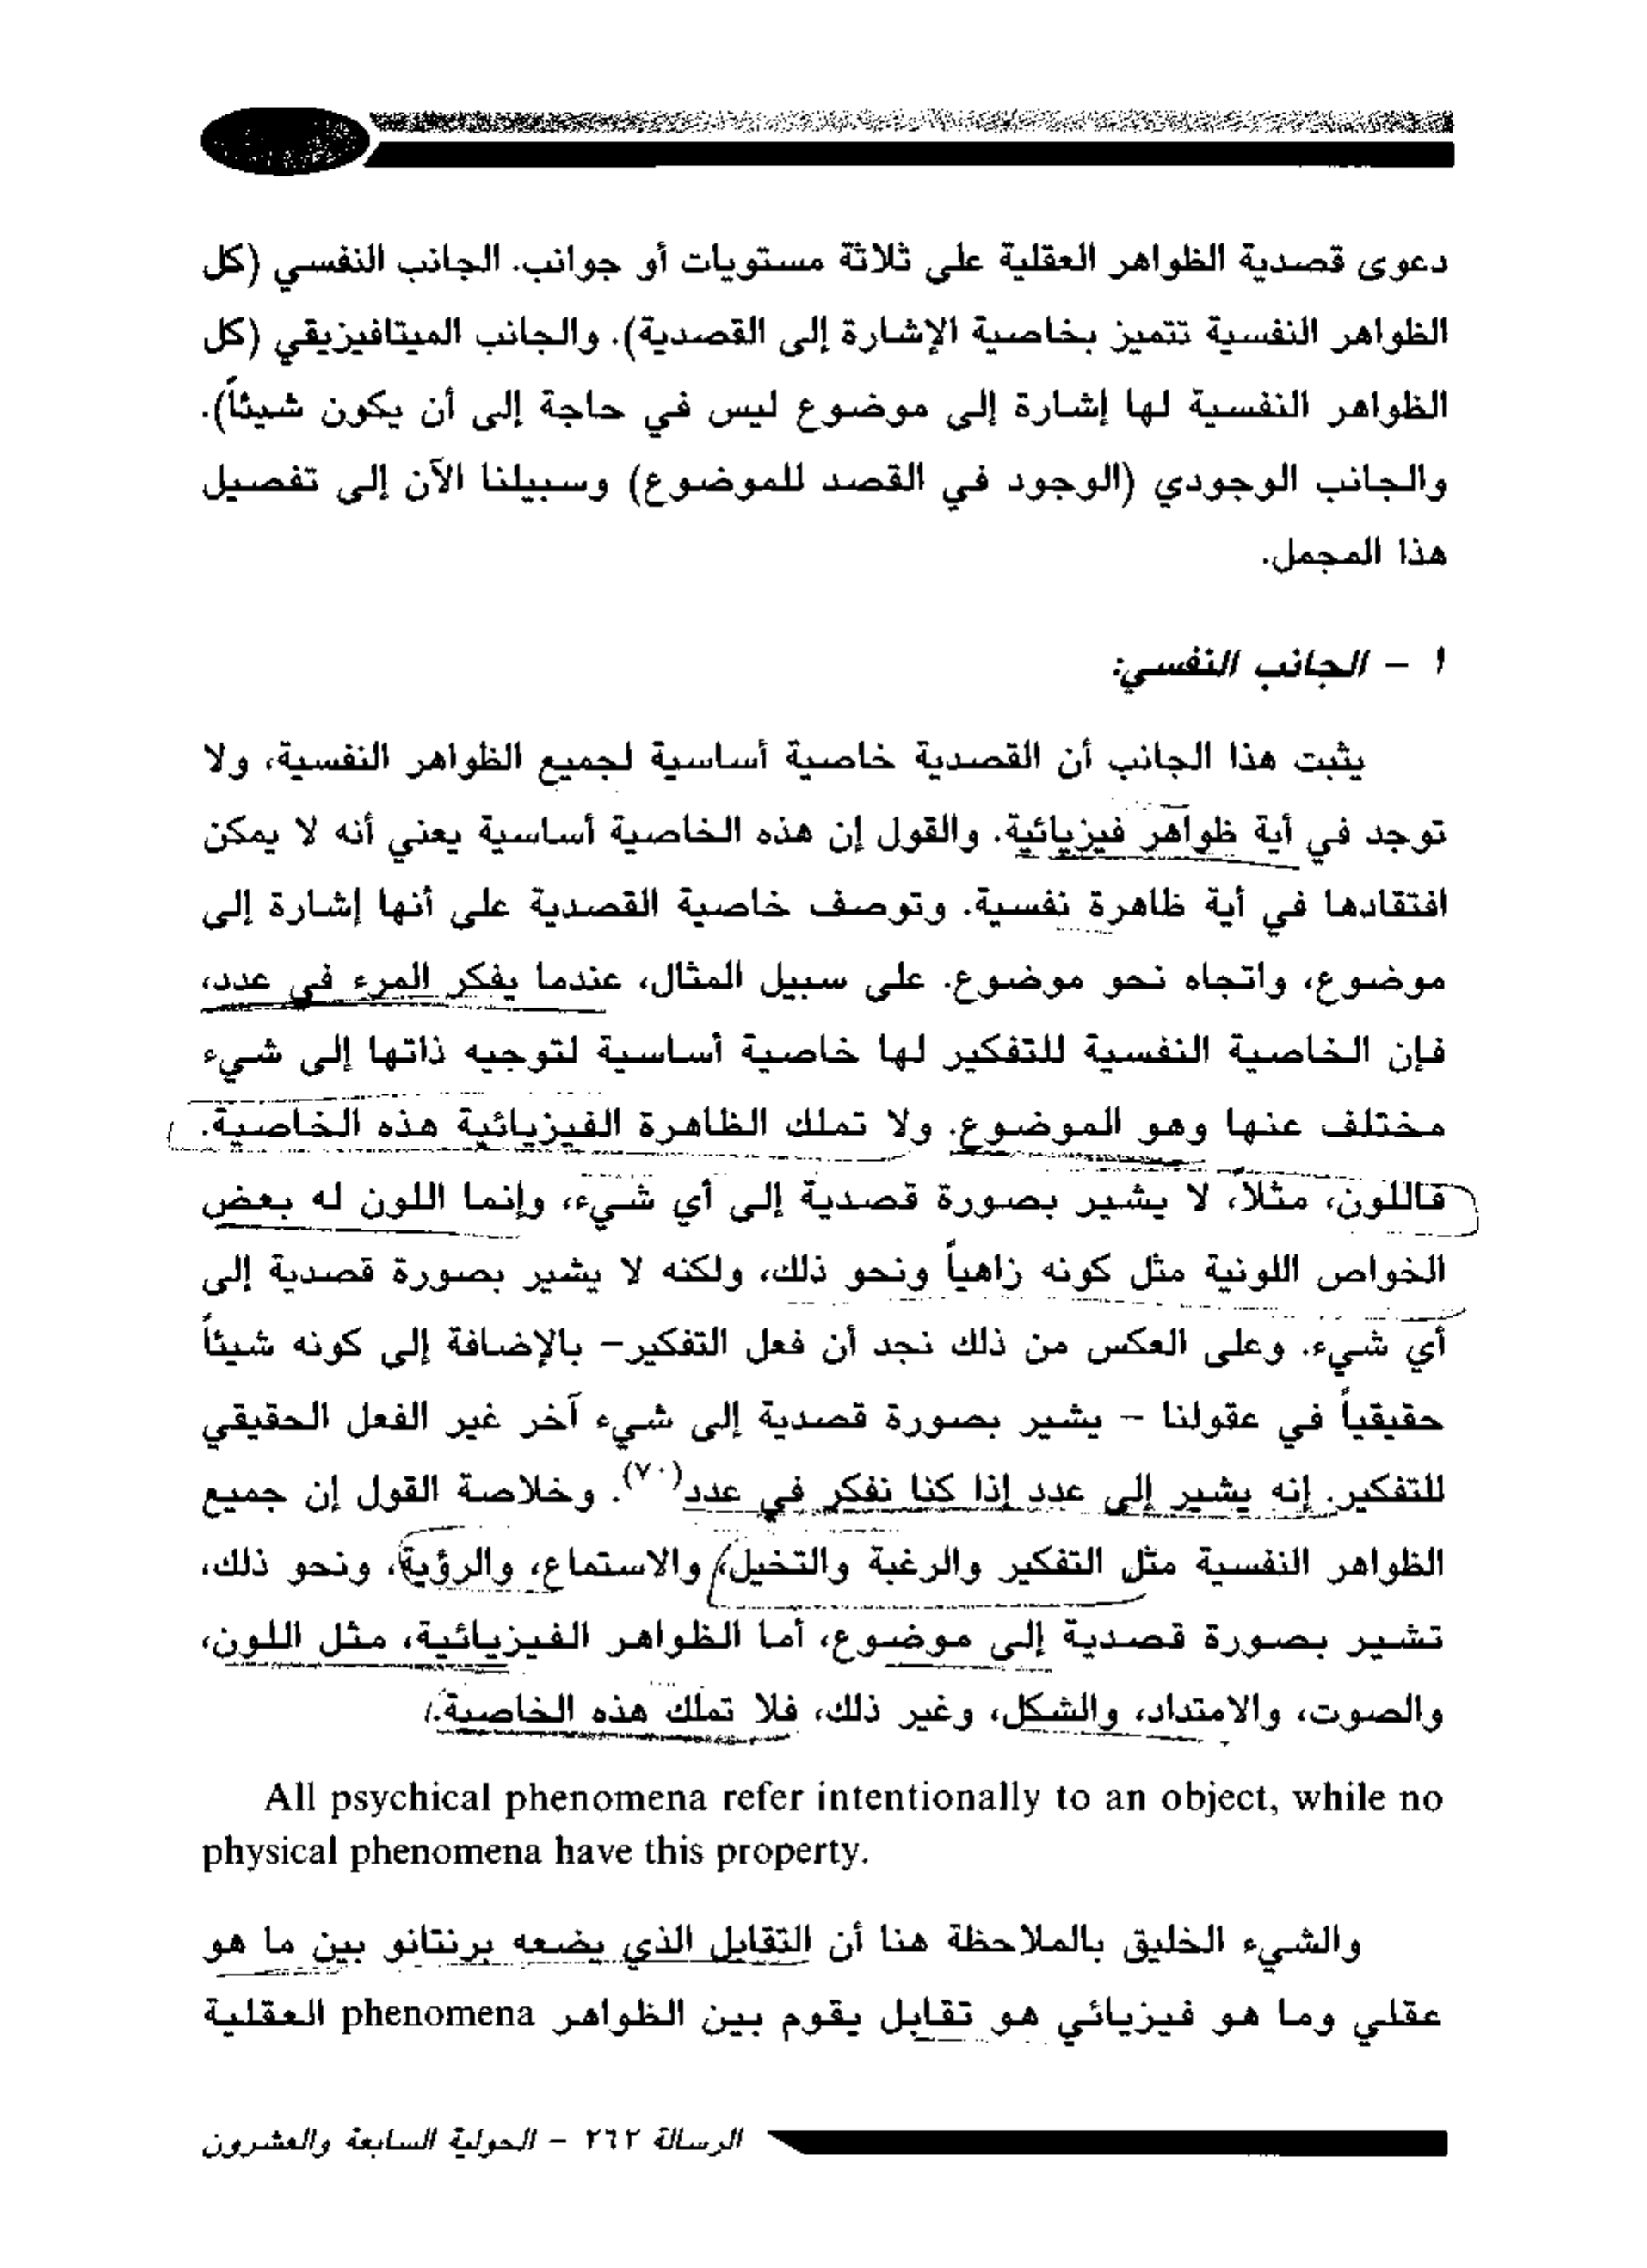 دعوى قصدية الظواهر العقلية على ثلاثة مستويات أو جوانب. الجانب النفسي (كل
الظواهر النفسية تتميز بخاصية الإشارة إلى القصدية). والجانب الميتافيزيقي (كل
الظواهر النفسية لها إشارة إلى موضوع ليس في حاجة إلى أن يكون شيئاً).
والجانب الوجودي (الوجود في القصد للموضوع) وسبيلنا الآن إلى تفصيل
هذا المجمل.
١ - الجانب النفسي:
يثبت هذا الجانب أن القصدية خاصية أساسية لجميع الظواهر النفسية، ولا
توجد في أية ظواهر فيزيائية. والقول إن هذه الخاصية أساسية يعني أنه لا يمكن
افتقادها في أية ظاهرة نفسية. وتوصف خاصية القصدية على أنها إشارة إلى
موضوع، واتجاه نحو موضوع. على سبيل المثال، عندما يفكر المرء في عدد،
فإن الخاصية النفسية للتفكير لها خاصية أساسية لتوجيه ذاتها إلى شيء
مختلف عنها وهو الموضوع. ولا تملك الظاهرة الفيزيائية هذه الخاصية.
فاللون، مثلاً، لا يشير بصورة قصدية إلى أي شيء، وإنما اللون له بعض
الخواص اللونية مثل كونه زاهياً ونحو ذلك، ولكنه لا يشير بصورة قصدية إلى
أي شيء. وعلى العكس من ذلك نجد أن فعل التفكير- بالإضافة إلى كونه شيئاً
حقيقياً في عقولنا - يشير بصورة قصدية إلى شيء آخر غير الفعل الحقيقي
للتفكير. إنه يشير إلى عدد إذا كنا نفكر في عدد(٧٠). وخلاصة القول إن جميع
الظواهر النفسية مثل التفكير والرغبة والتخيل، والاستماع، والرؤية، ونحو ذلك،
تشير بصورة قصدية إلى موضوع، أما الظواهر الفيزيائية، مثل اللون،
والصوت، والامتداد، والشكل، وغير ذلك، فلا تملك هذه الخاصية.
All psychical phenomena refer intentionally to an object, while no
physical phenomena have this property.
والشيء الخليق بالملاحظة هنا أن التقابل الذي يضعه برنتانو بين ما هو
عقلي وما هو فيزيائي هو تقابل يقوم بين الظواهر phenomena العقلية
الرسالة ٢٦٢ - الحولية السابعة والعشرون